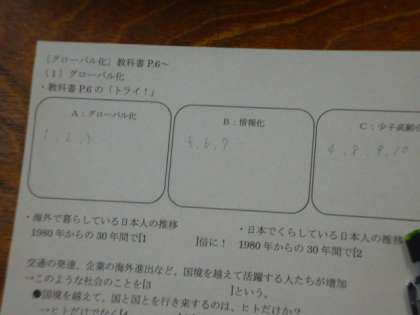 〔グローバル化〕教科書 P.6~
(1) グローバル化
・教科書P.6の「トライ!」
A:グローバル化
B:情報化
C:少子高齢化
1, 2, 3
5, 6, 7
4, 8, 9, 10
・海外で暮らしている日本人の推移
・日本でくらしている外
1980年からの30年間で〔1 〕倍に!
1980年からの30年間で〔2
交通の発達、企業の海外進出など、国境を越えて活躍する人たちが増加
→このような社会のことを〔3 〕という。
●国境を越えて、国と国とを行き来するのは、ヒトだけか?
→ヒトだけでなく〔4